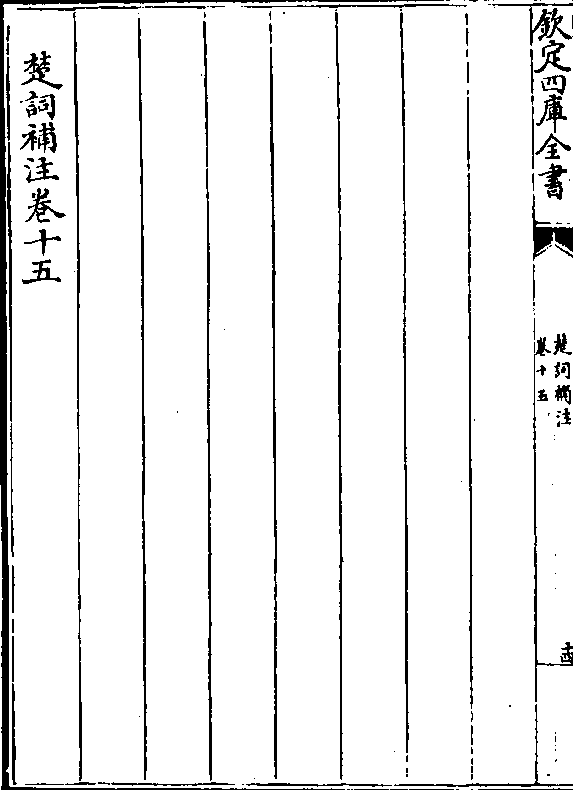 欽定四庫全書
楚詞補注
卷十五
十四
楚詞補注卷十五